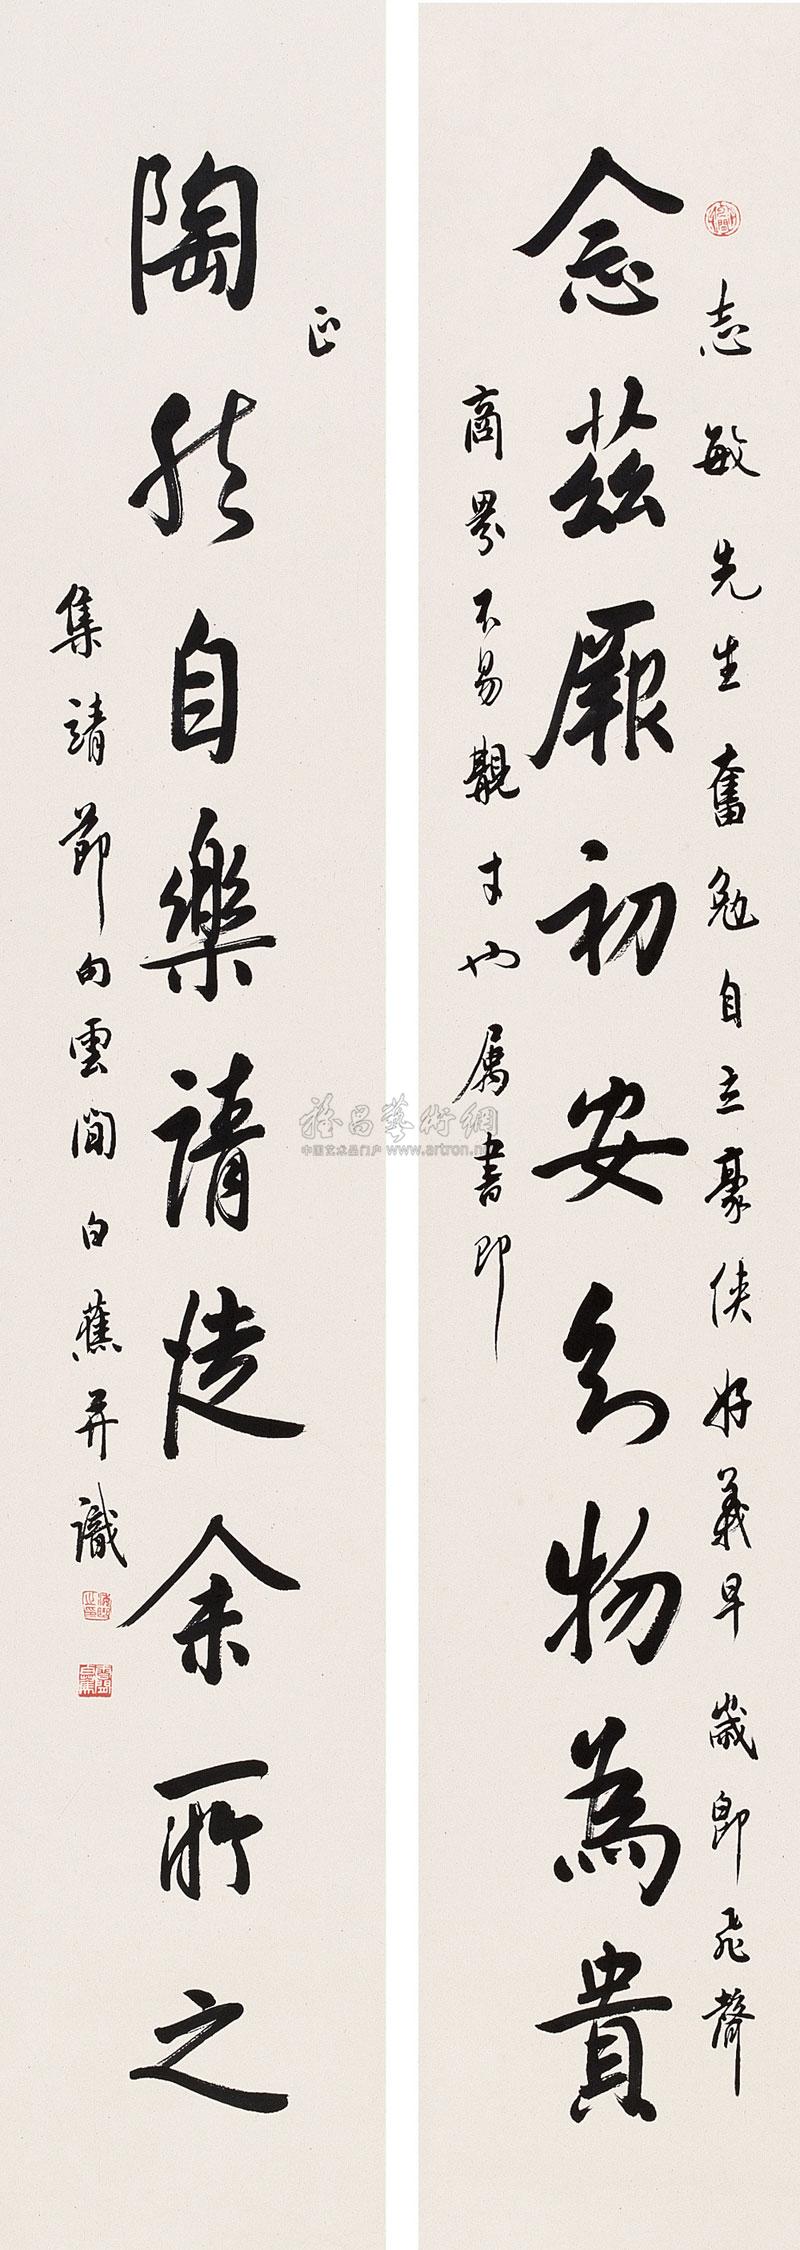 志敏先生奮勉自立豪俠好義早歲即飛聲
念茲厥初安知物為貴
商界不易覯才也屬書即
正
陶然自樂請從余所之
集靖節句雲間白蕉并識
雅昌藝術網
中国艺术品门户 www.artron.net